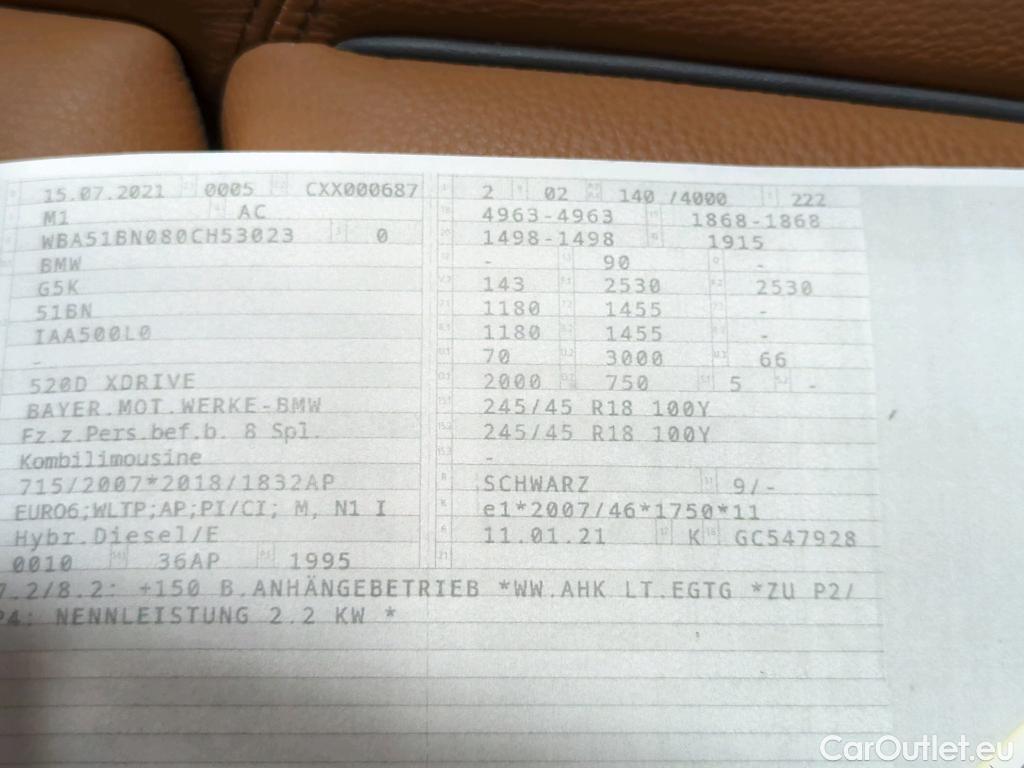 15.07.2021 0005 CXX000687
M1 AC
WBA51BN080CH53023 0
BMW
G5K
51BN
IAA500L0
-
520D XDRIVE
BAYER.MOT.WERKE-BMW
Fz.z.Pers.bef.b. 8 Spl.
Kombilimousine
715/2007*2018/1832AP
EURO6;WLTP;AP;PI/CI; M, N1 I
Hybr.Diesel/E
0010 36AP 1995
2 02 140 /4000 222
4963-4963 1868-1868
1498-1498 1915
- 90 -
143 2530 2530
1180 1455 -
1180 1455 -
70 3000 66
2000 750 5 -
245/45 R18 100Y
245/45 R18 100Y
-
SCHWARZ 9/-
e1*2007/46*1750*11
11.01.21 K GC547928
7.2/8.2: +150 B.ANHÄNGEBETRIEB *WW.AHK LT.EGTG *ZU P2/
P4: NENNLEISTUNG 2.2 KW *
CarOutlet.eu